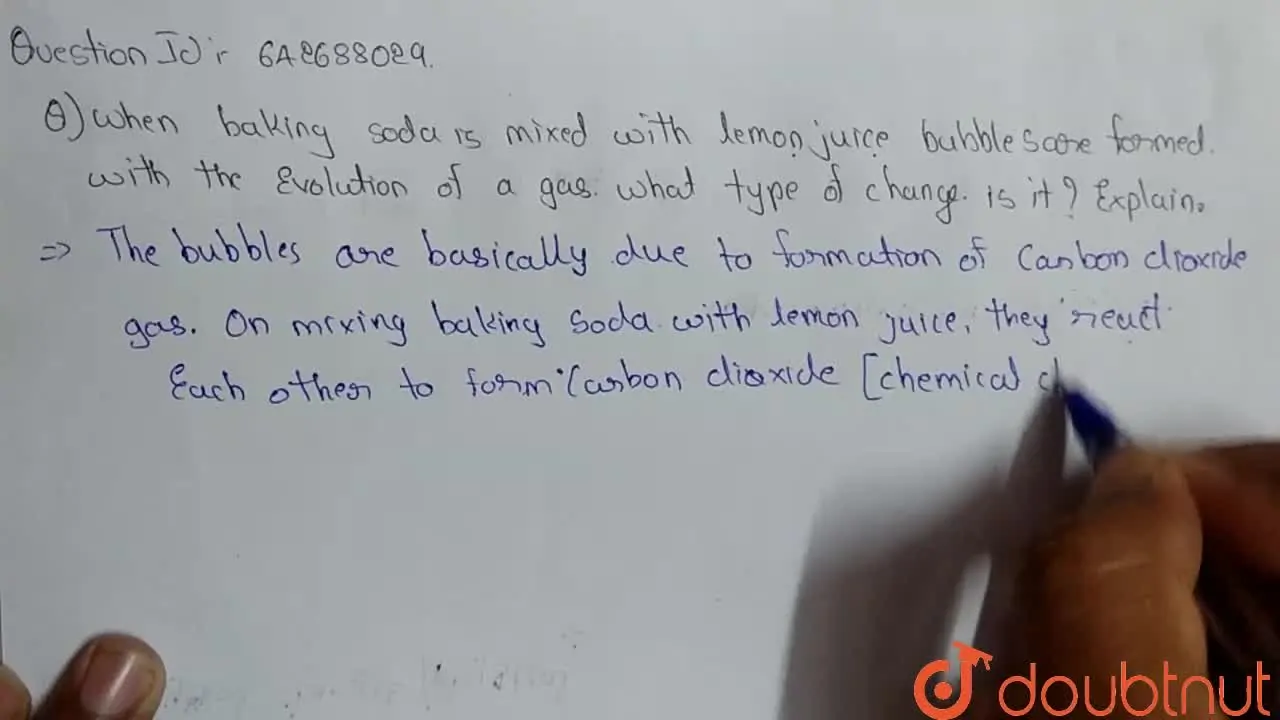 Question ID :- 642688029.
Q) When baking soda is mixed with lemon juice bubbles are formed.
with the Evolution of a gas. what type of change. is it? Explain.
=> The bubbles are basically due to formation of Carbon dioxide
gas. On mixing baking soda with lemon juice, they react
Each other to form Carbon dioxide [chemical ch
doubtnut